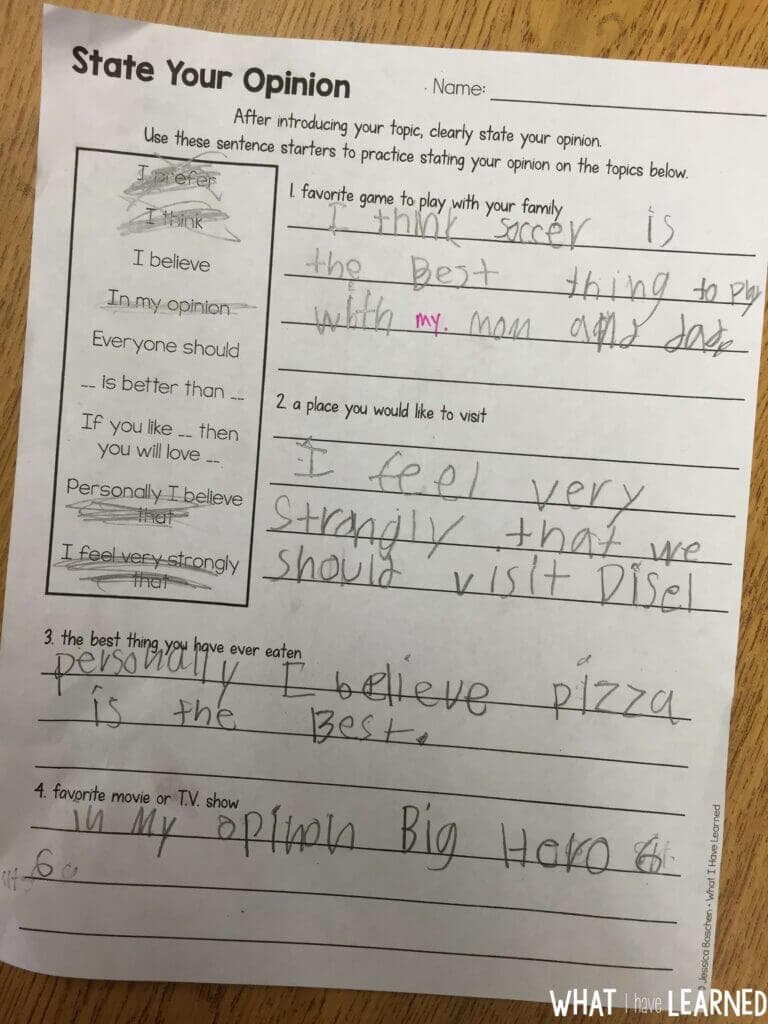 State Your Opinion
Name:
After introducing your topic, clearly state your opinion.
Use these sentence starters to practice stating your opinion on the topics below.
I prefer
I think
I believe
In my opinion
Everyone should
__ is better than __
If you like __ then
you will love __
Personally I believe
that
I feel very strongly
that
1. favorite game to play with your family
I think soccer is
the Best thing to play
with my. mom and dad.
2. a place you would like to visit
I feel very
Strongly that we
should visit Disel
3. the best thing you have ever eaten
personally I believe pizza
is the Best.
4. favorite movie or T.V. show
in My opinon Big Hero 6
6
© Jessica Boschen • What I Have Learned
WHAT I have LEARNED